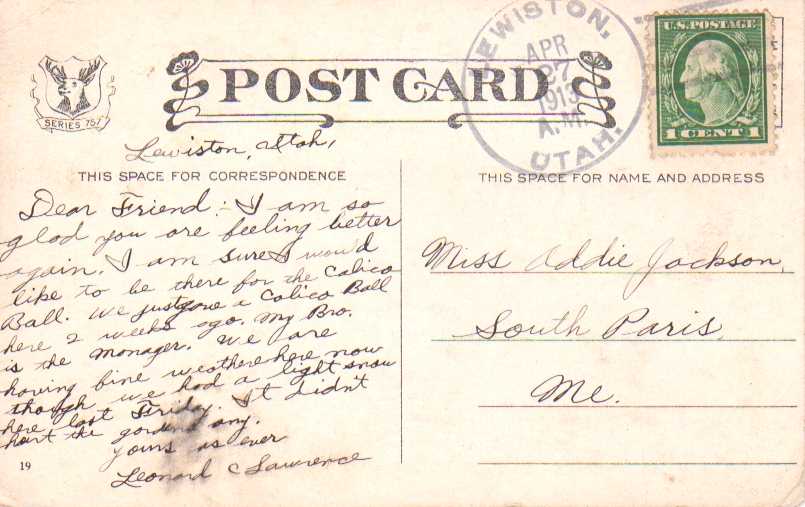 SERIES 757
POST CARD
LEWISTON,
APR
27
1913
A.M.
UTAH.
U.S. POSTAGE
1 CENT 1
Lewiston, Utah,
THIS SPACE FOR CORRESPONDENCE
Dear Friend:- I am so
glad you are feeling better
again. I am sure I would
like to be there for the Calico
Ball. We just gave a Calico Ball
here 2 weeks ago. My Bro.
is the manager. We are
having fine weather here now
though we had a light snow
here last Friday. It didn't
hurt the gardens any.
yours as ever
Leonard C Lawrence
19
THIS SPACE FOR NAME AND ADDRESS
Miss Addie Jackson,
South Paris,
Me.